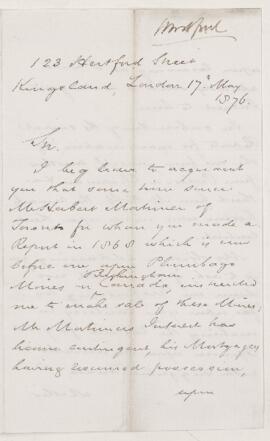 123 Hertford Street
Kingsland, London 17th May
1876.
Sir.
I beg leave to acquaint
you that some time since
Mr Herbert Mortimer of
Toronto for whom you made a
Report in 1868 which is now
before me upon Plumbago
Mines in Buckingham Canada, instructed
me to make sale of these Mines,
Mr Mortimers Interest has
become contingent, his Mortgagees
having assumed possession,
upon